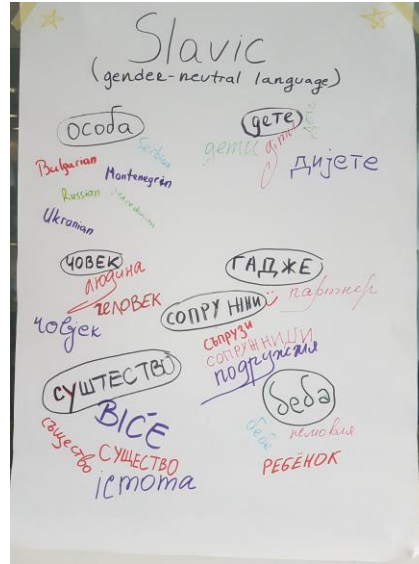 Slavic
(gender-neutral language)
особа
Serbian
Bulgarian
Montenegrin
Russian
Ukranian
дете
дети
дијете
ЧОВЕК
людина
ЧЕЛОВЕК
човјек
ГАДЖЕ
партнер
СОПРУЖНИ
СЪПРУЗИ
СОПРУЖНИЦИ
подружжя
СУШТЕСТВО
BIĆE
същество
СУЩЕСТВО
істота
беба
бебе
немовля
РЕБЁНОК